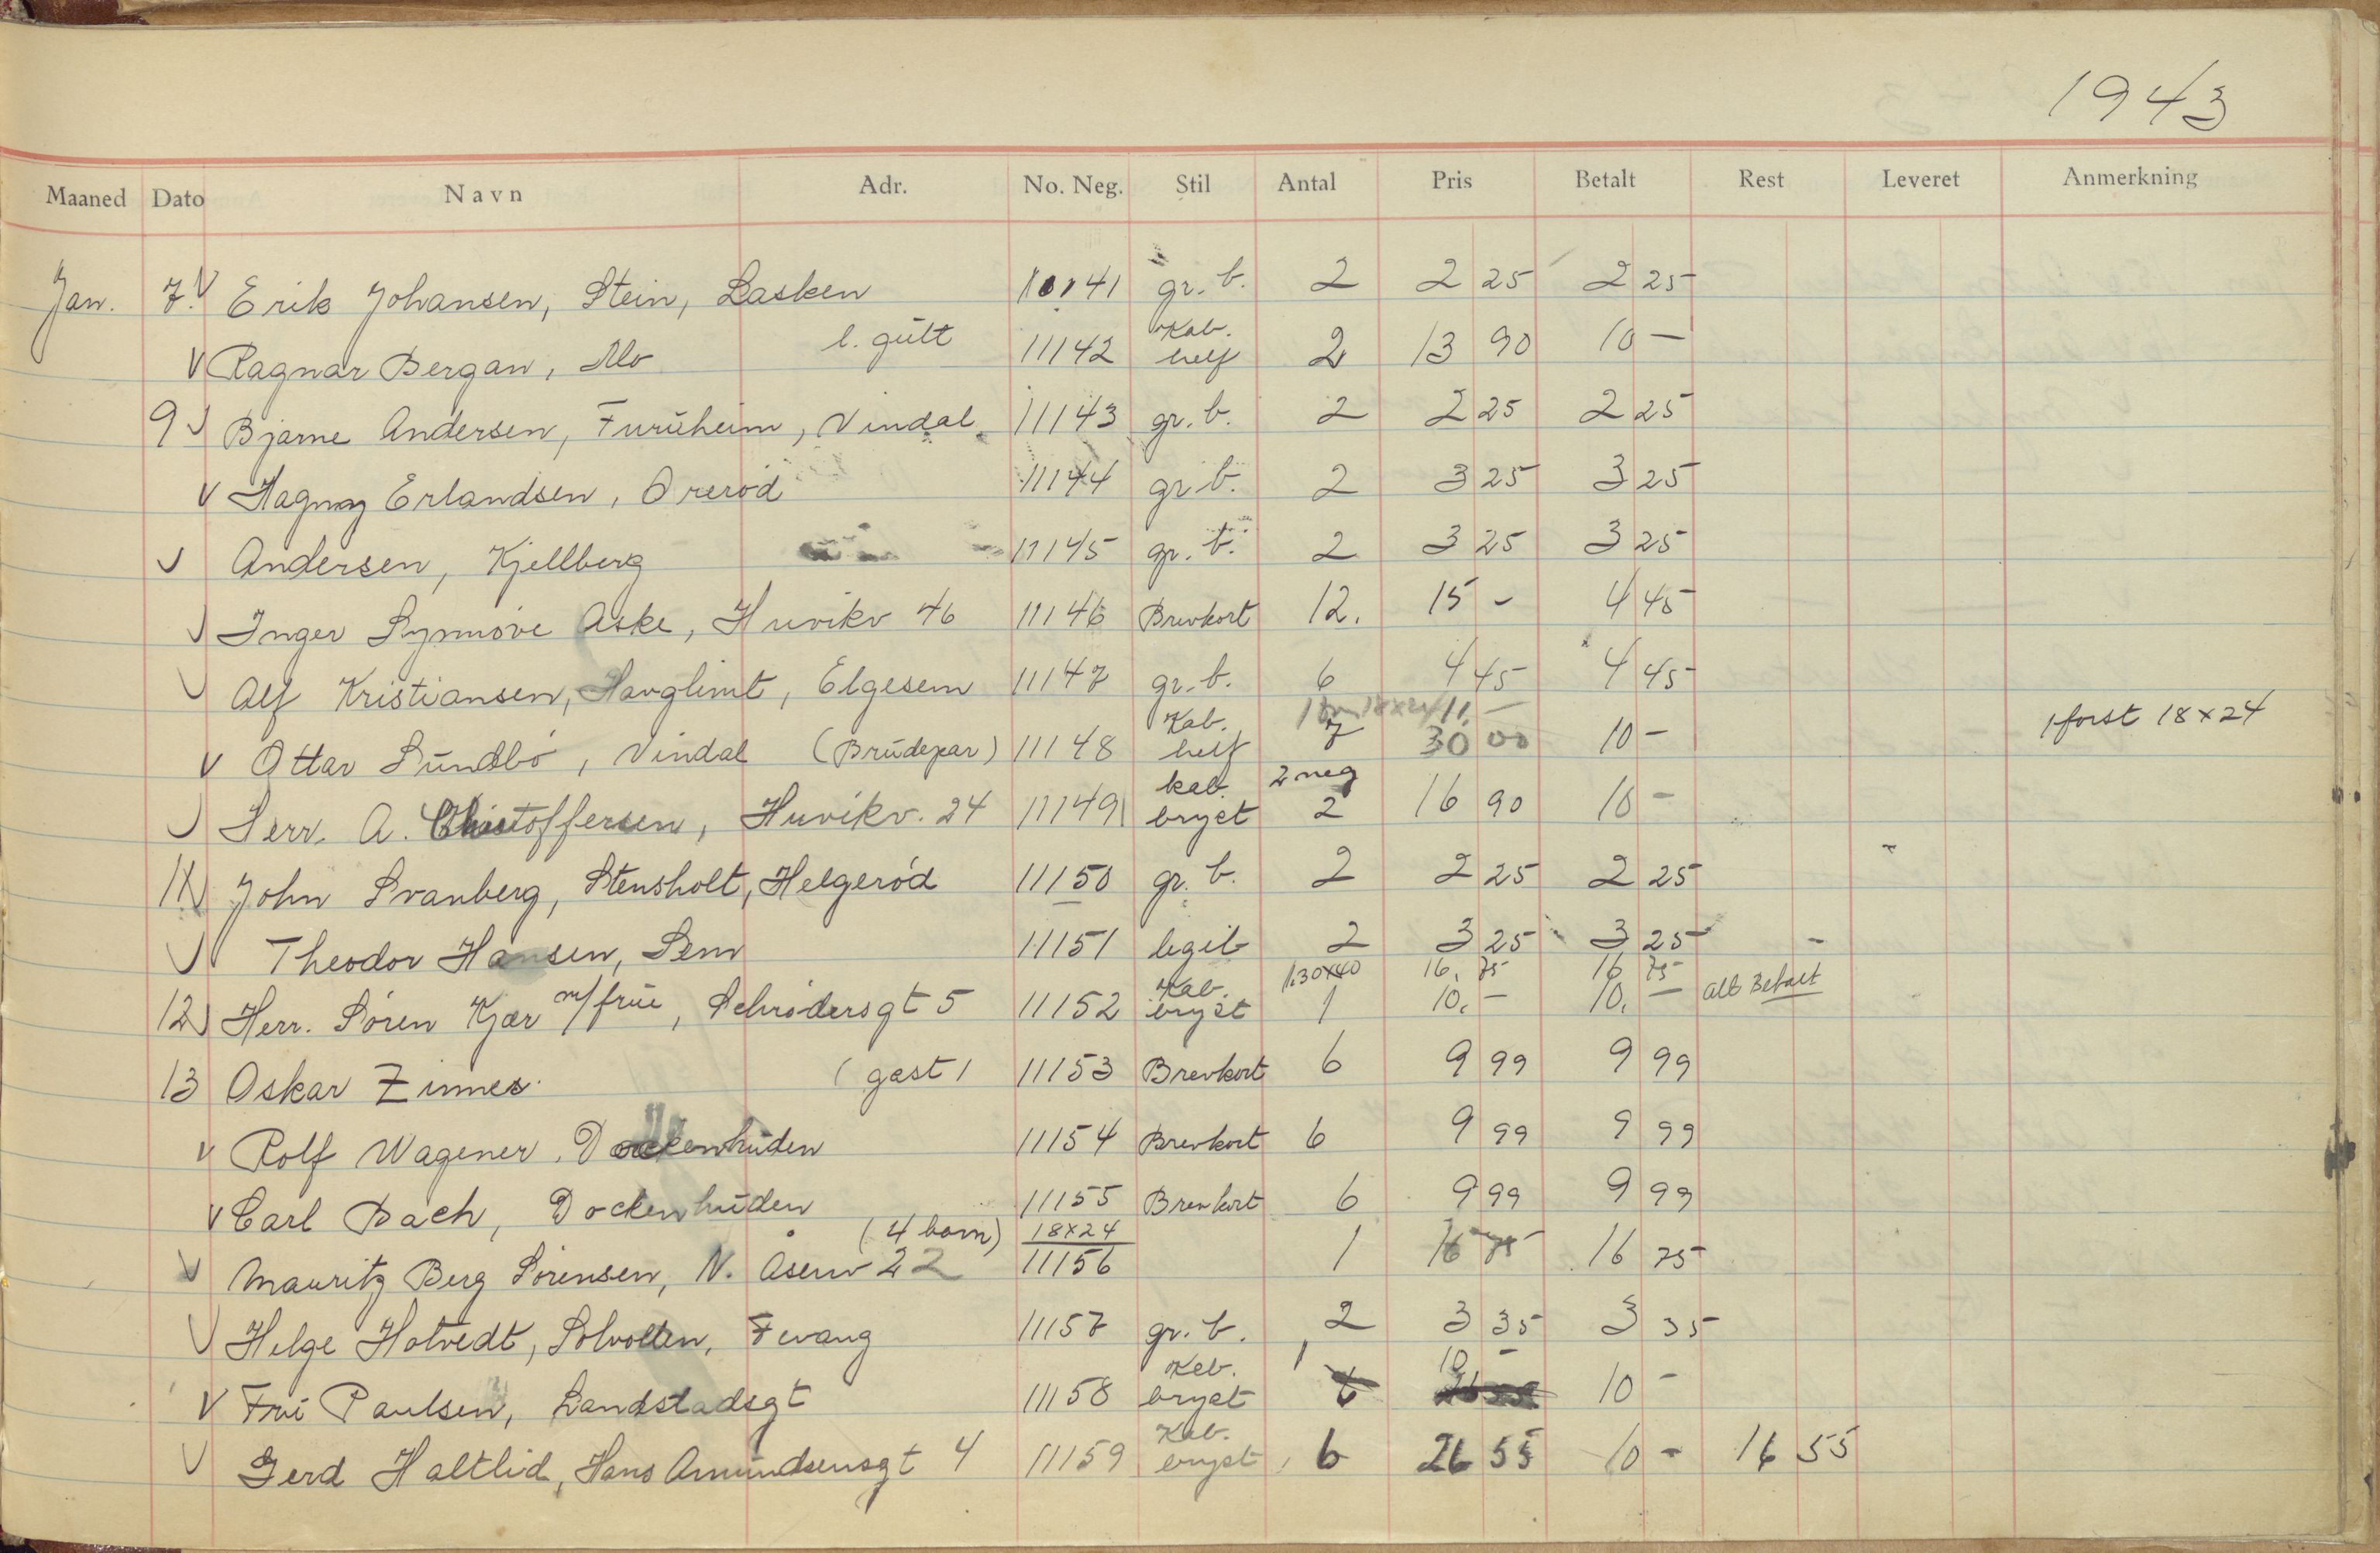 1943
Maaned Dato Navn Adr. No. Neg. Stil Antal Pris Betalt Rest Leveret Anmerkning
Jan. 7. V Erik Johansen, Stein, Lasken 11141 gr. b. 2 2 25 2 25
V Ragnar Bergan, Mo l. gült 11142 Kab. helf 2 13 90 10 -
9 V Bjarne Andersen, Furüheim, Vindal. 11143 gr. b. 2 2 25 2 25
V Magny Erlandsen, Orerød 11144 gr b. 2 3 25 3 25
V Andersen, Kjellberg 11145 gr. b. 2 3 25 3 25
V Inger Synnøve Aske, Huvikv 46 11146 Brevkort 12. 15 - 4 45
V Alf Kristiansen, Havglimt, Elgesem 11147 gr. b. 6 4 45 4 45
18x24 11. -
V Ottar Sündbö, Vindal (Brüdepar) 11148 Kab. helf 7 30 00 10 - 1 forst 18x24
V Herr. A. Christoffersen, Huvikv. 24 11149 kab. bryst 2 neg 2 16 90 10 -
11 V John Svanberg, Stensholt, Helgeröd 11150 gr. b. 2 2 25 2 25
V Theodor Hansen, Sem 11151 legit 2 3 25 3 25 -
1.30x40 16. 75 16 75
12 V Herr. Sören Kjær m/früe, Schrödersgt 5 11152 Kab. bryst 1 10. - 10. - alt Betalt
13 Oskar Zinnes. (gast) 11153 Brevkort 6 9 99 9 99
V Rolf Wagener, Dockenhüden 11154 Brevkort 6 9 99 9 99
V Carl Bach, Dockenhüden 11155 Brevkort 6 9 99 9 99
(4 barn) 18x24
V Mauritz Berg Sörensen, N. Åsenv 22 11156 1 16 75 16 75
V Helge Hotvedt, Solvollen, Fevang 11157 gr. b. 2 3 35 3 35
V Frü Paulsen, Landstadsgt 11158 Kab. bryst 1 10 - 10 -
V Gerd Haltlid, Hans Amündsensgt 4 11159 Kab. bryst 6 26 55 10 - 16 55